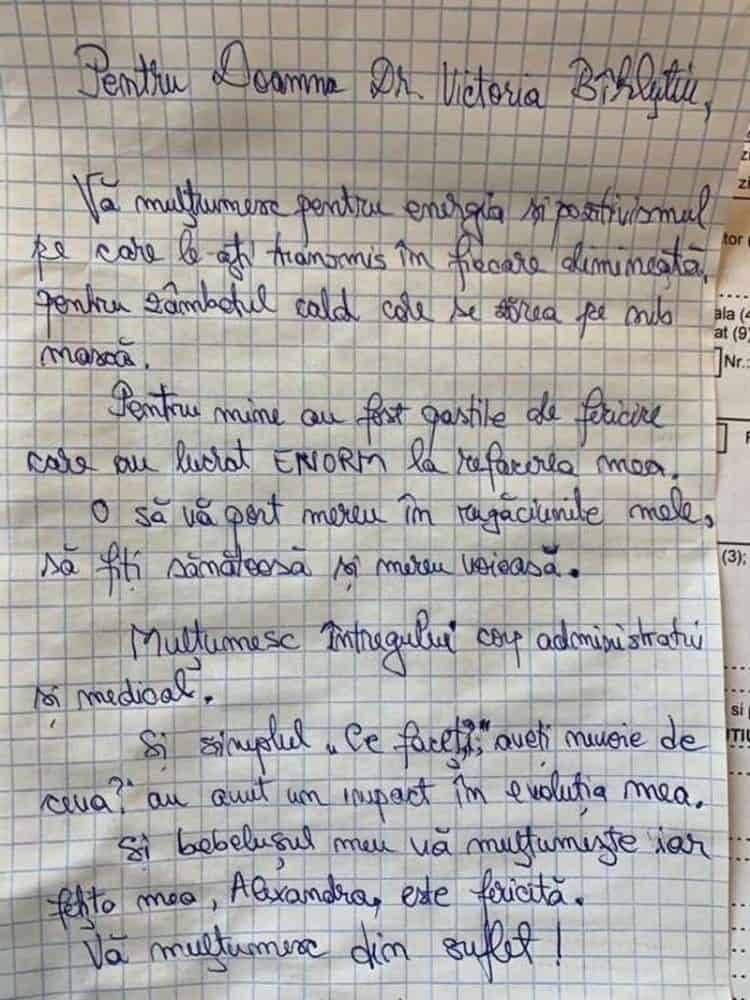 Pentru Doamna Dr. Victoria Bîrlutiu,
Vă mulțumesc pentru energia și pozitivismul
pe care le-ați transmis în fiecare dimineață,
pentru zâmbetul cald care se pe sub
mască.
Pentru mine au fost pastile de fericire
care au lucrat ENORM la refacerea mea.
O să vă port mereu în rugăciunile mele,
să fiți sănătoasă și mereu voioasă.
Mulțumesc întregului corp administrativ
și medical.
Și simplul „Ce faceți?", aveți nevoie de
ceva?" au avut un impact în evoluția mea.
Și bebelușul meu vă mulțumește iar
fetița mea, Alexandra, este fericită.
Vă mulțumesc din suflet!
zi
zi
tor (
ala (4
at (9)
Nr.:
(3);
și